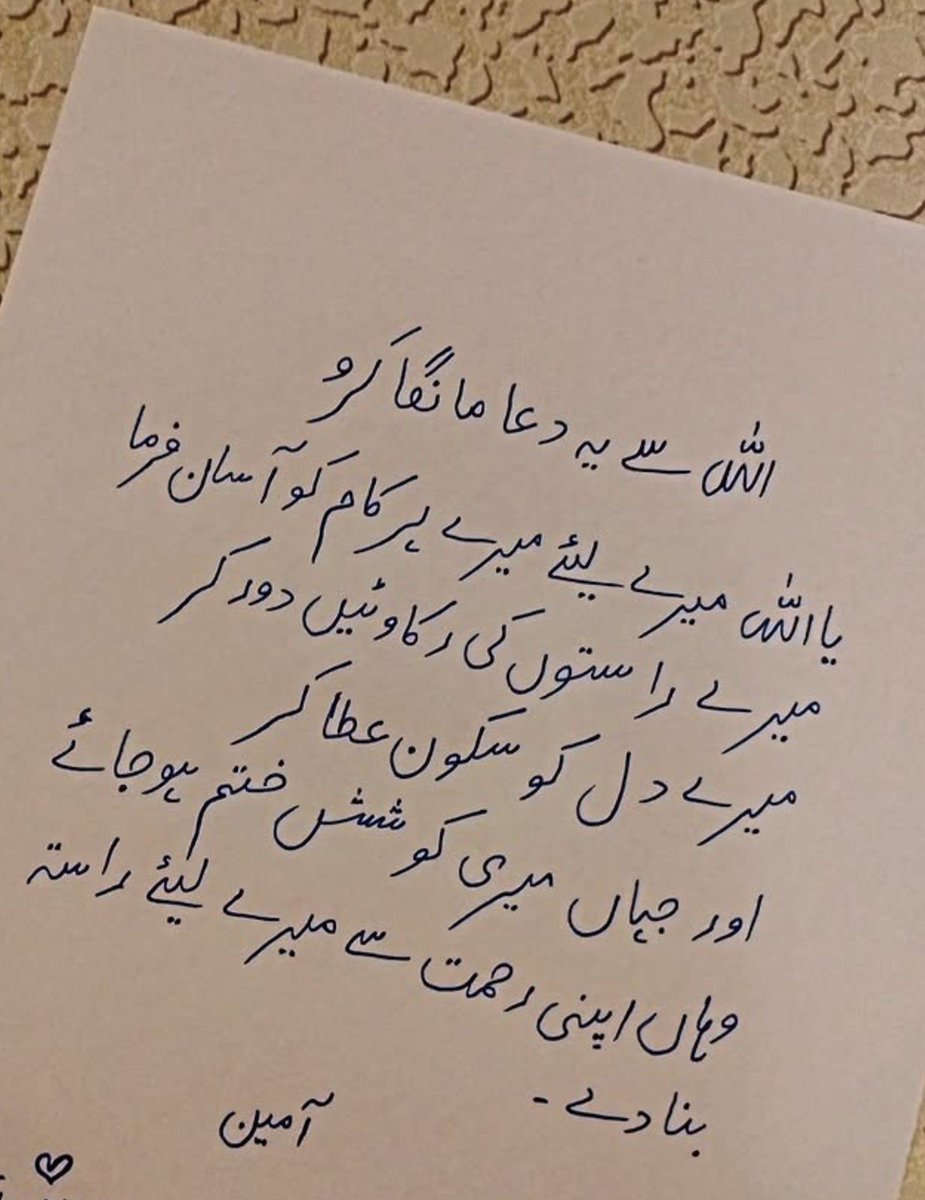 اللہ سے یہ دعا مانگا کرو
یا اللہ میرے لیئے میرے ہر کام کو آسان فرما
میرے راستوں کی رکاوٹیں دور کر
میرے دل کو سکون عطا کر
اور جہاں میری کوشش ختم ہو جائے
وہاں اپنی رحمت سے میرے لیئے راستہ
بنا دے ۔
آمین